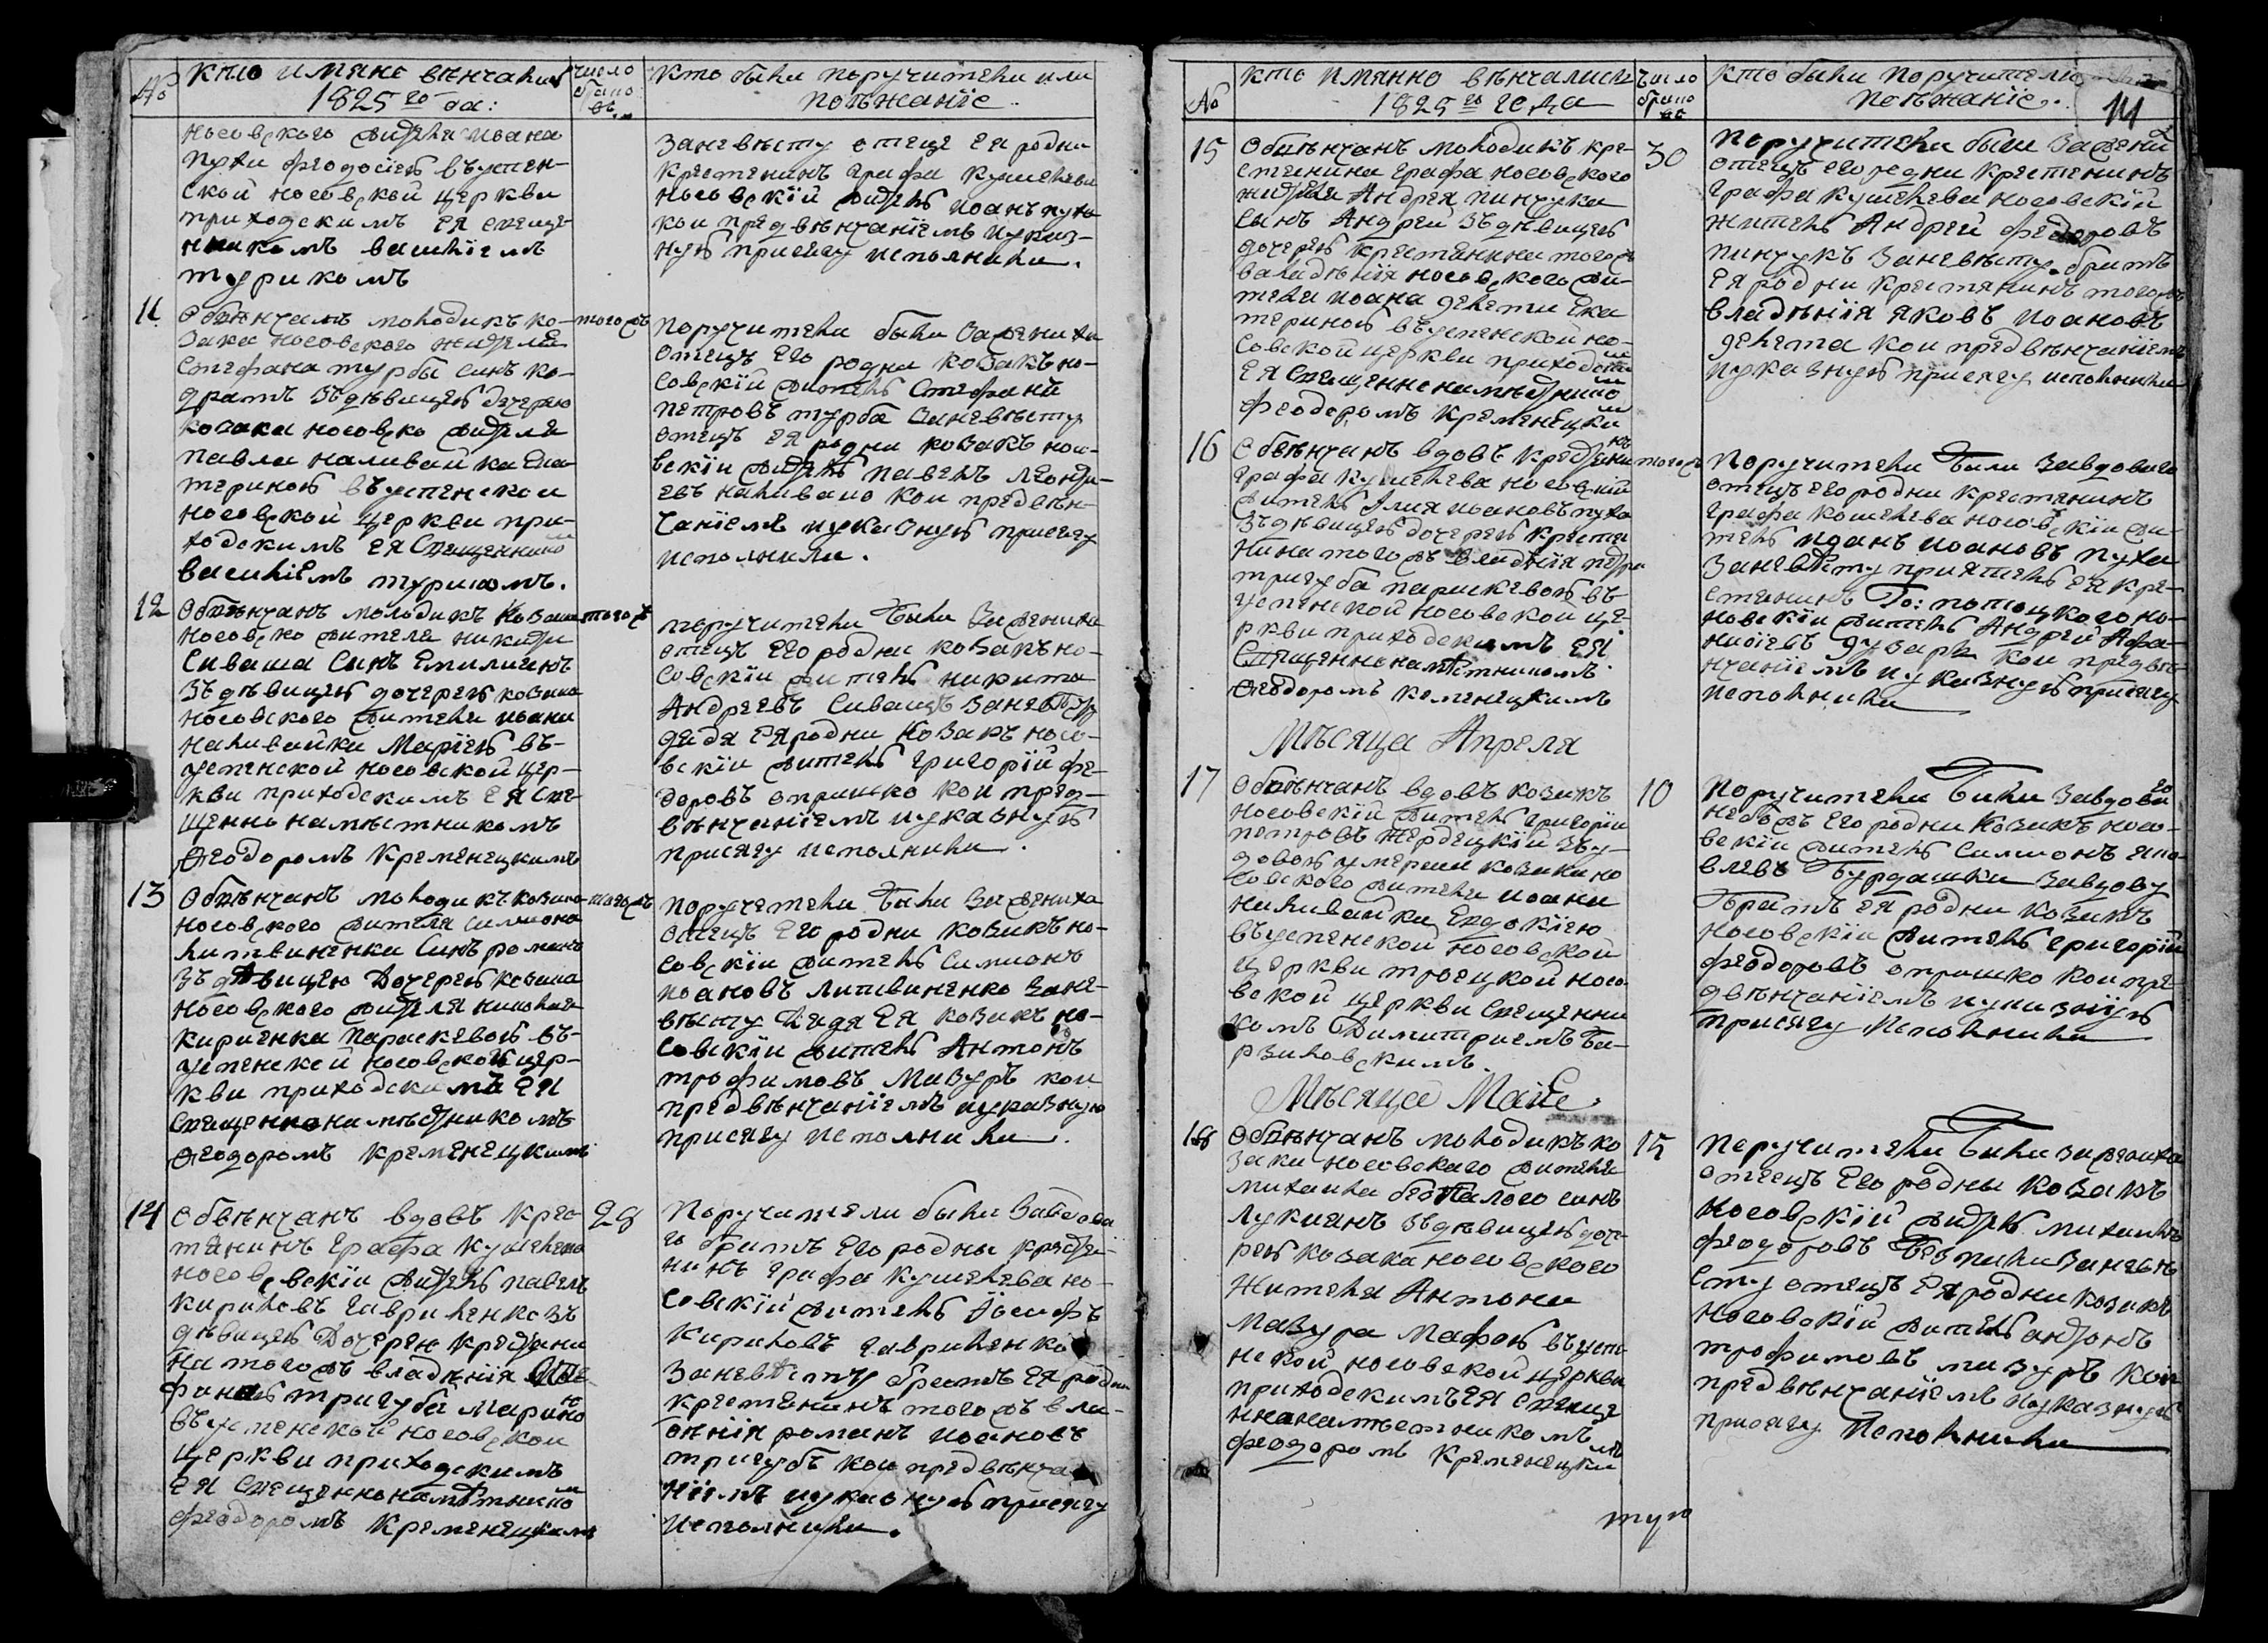 №
кто имяно венчаны
1825го года:
число браковъ
кто были поручители или
поезжаніе
носовского жителя иоана
пухи феодосіею въ успен-
ской носовской церкви
приходскимъ ея свяще-
нникомъ василіемъ
турикомъ
за невѣсту отецъ ея родни
крестянинъ графа кушелева
носовскій житель иоанъ пуха
кои предвѣнчаніемъ иуказ-
ную присягу исполнили.
11
Обвѣнчанъ молодикъ ко-
зака носовского жителя
Стефана турбы синъ ко-
дратъ зъ дѣвицею дочерею
козака носовско жителя
павла наливайка Ека-
териною въ успенской
носовской церкви при-
ходскимъ ея Священнико
василіемъ турикомъ.
тогожъ
поручители были За жениха
отецъ его родни козакъ но-
совскій житель Стефанъ
петровъ турба За невѣсту
отецъ ея родни козакъ носо-
вскій житель павелъ леонти-
евъ наливайко кои предвѣн-
чаніемъ иуказную присягу
исполнили.
12
Обвѣнчанъ молодикъ козака
носовско жителя никиты
Сиваша Синъ Емилиянъ
Зъ дѣвицею дочерею козака
носовского жителя иоана
наливайки Маріею въ-
успенской носовской цер-
кви приходскимъ ея Свя-
щенно намѣстникомъ
Феодоромъ Кременецкимъ
тогожъ
поручители были За жениха
отецъ его родни козакъ но-
совскій житель никита
Андреевъ Сивашъ За невѣсту
дядя ея родни козакъ носо-
вскій житель григорій фе-
доровъ опришко кои пред-
вѣнчаніемъ иуказную
присягу исполнили.
13
Обвѣнчанъ молодикъ козака
носовского жителя симиона
литвиненка Синъ романъ
зъ дѣвицею Дочерею козака
носовского жителя николая
кириенка параскевою въ-
успенской носовской цер-
кви приходскимъ ея
священнонамѣстникомъ
Феодоромъ кременецкимъ
тогожъ
поручители были За жениха
отецъ его родни козакъ но-
совскій житель Симионъ
иоановъ литвиненко За не-
вѣсту дядя ея козакъ но-
совскій житель Антонъ
трофимовъ мазуръ кои
предвѣнчаніемъ иуказную
присягу исполнили.
14
Обвѣнчанъ вдовъ крес-
тянинъ графа кушелева
носовскій житель павелъ
кириловъ гавриленко зъ
дѣвицею Дочерею крестяни
на тогожъ владѣнія
тригуба Мариною
въ успенской носовской
церкви приходскимъ
ея Священнонамѣстнико
феодоромъ Кременецкимъ
28
Поручители были За вдова
го братъ его родны крестя-
нинъ графа кушелева но-
совскій житель іосифъ
кириловъ гавриленко
За невѣсту братъ ея родни
крестянинъ тогожъ вла-
дѣнія романъ иоановъ
тригубъ кои предвѣнча-
ніемъ иуказную присягу
исполнили.
№
кто имянно вѣнчались
1825го года
число браковъ
кто были поручители
поезжаніе.
15
Обвѣнчанъ молодикъ кре-
стянина графа носовского
жителя Андрея пинчука
Сынъ Андрей Зъ дѣвицею
дочерею крестянина тогожъ
владѣнія носовского жи-
теля иоана делети Ека
териною въ успенской но-
совской церкви приходски
ея Священнонамѣстнико
феодоромъ Кременецки
30
Поручители были За жени
отецъ его родни крестянинъ
графа кушелева носовскій
житель Андрей федоровъ
пинчукъ За невѣсту братъ
ея родни крестянинъ тогожъ
владѣнія яковъ иоановъ
делета кои предвѣнчаніемъ
иуказную присягу исполнили
16
Обвѣнчанъ вдовъ крестянинъ
графа кушелева носовскій
житель Илия иоановъ пуха
Зъ дѣвицею дочерею крестя
нина тогожъ владѣнія
тригуба параскевою въ
успенской носовской це-
ркви приходскимъ ея
Священнонамѣстникомъ
Феодоромъ Кременецкимъ
тогожъ
Поручители были За вдового
отецъ его родни крестянинъ
графа кошелева носовскій жи-
тель иоанъ иоановъ пуха
За невѣсту приятель ея кре-
стянинъ Го: потоцкого но-
совскій житель Андрей Афа-
насіевъ кои предвѣ-
нчаніемъ иуказную присягу
исполнили
Мѣсяца Апреля
17
Обвѣнчанъ вдовъ козакъ
носовскій житель григорій
петровъ жердецкій зъ в-
довою умершаго козака но
совского жителя иоана
наливайки Евдокіею
въ успенской носовской
церкви троецкой носо
вской церкви священни
комъ Димитріемъ Ба-
рзиковскимъ
10
Поручители были За вдоваго
его родни козакъ носо-
вскій житель Симионъ яко-
влевъ Бурдашка За вдову
братъ ея родни козакъ
носовскій житель григорій
феодоровъ опришко кои пре
двѣнчаніемъ иуказную
присягу исполнили
Мѣсяца Маіе.
18
Обвѣнчанъ молодикъ ко
зака носовского жителя
михаила безпалого синъ
лукиянъ зъ дѣвицею доче-
рею козака носовского
жителя Антона
Мазура Мафою въ успе
нской носовской церкви
приходскимъ ея свяще
ннонамѣстникомъ
феодоромъ Кременецки
15
Поручители были за жениха
отецъ его родны козакъ
носовскій житель михаилъ
феодоровъ безпали За невѣ
сту отецъ ея родни козакъ
носовскій житель андонъ
трофимовъ мазуръ кои
предвѣнчаніемъ иуказную
присягу исполнили